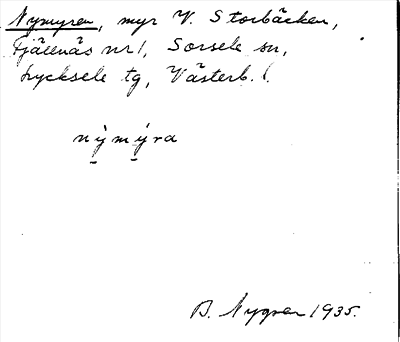 Nymyren, myr V. Storbäcken,
Fjällnäs nr 1, Sorsele sn,
Lycksele tg, Västerb. l.
nỳ̠mý̠ra
B. Nygren 1935.